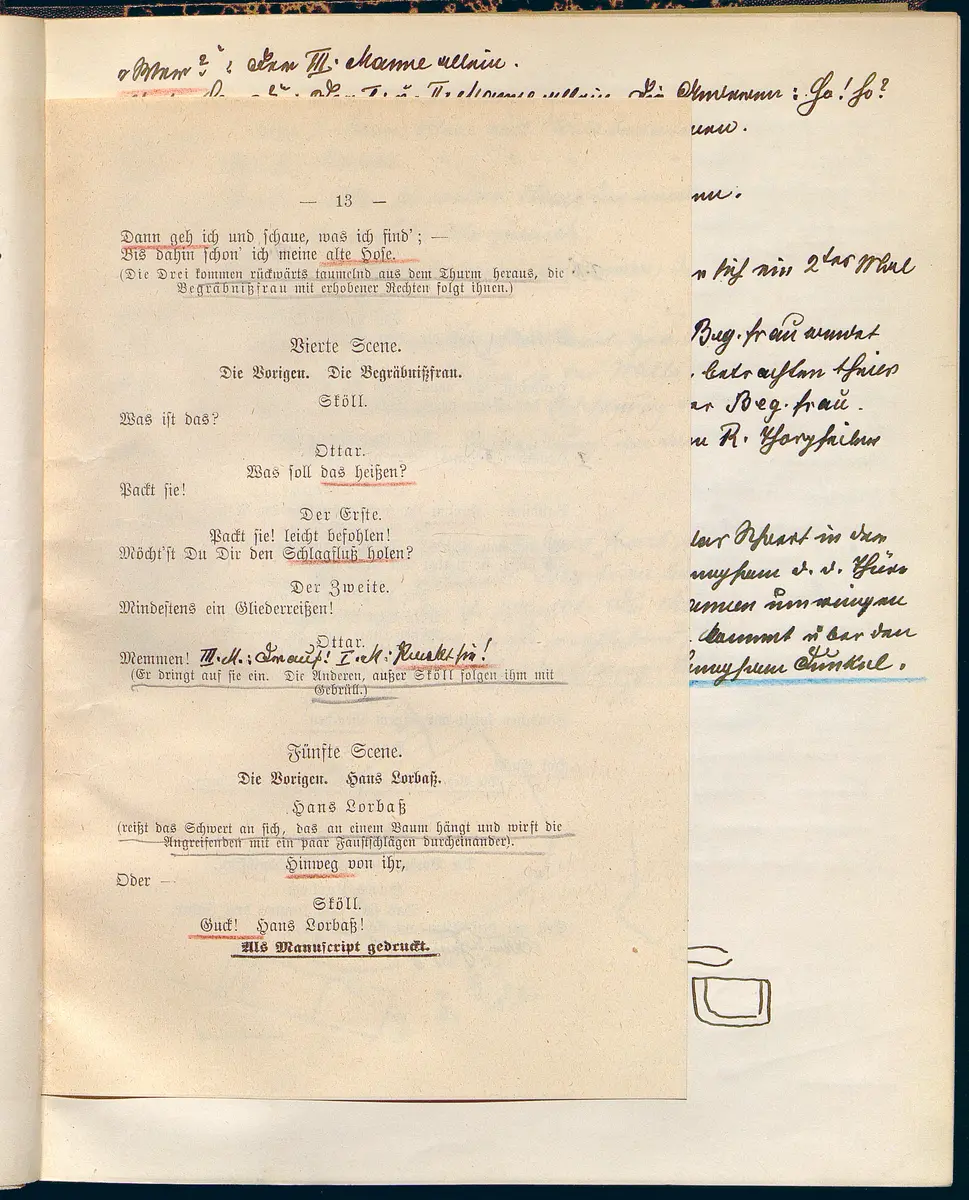 "Wer?": Der III. Manne allein.
Die Anderen: Ho! Ho?
— 13 —
Dann geh ich und schaue, was ich find'; —
Bis dahin schon' ich meine alte Hose.
(Die Drei kommen rückwärts taumelnd aus dem Thurm heraus, die
Begräbnißfrau mit erhobener Rechten folgt ihnen.)
sich ein 2tes Mal
Vierte Scene.
Die Vorigen. Die Begräbnißfrau.
Sköll.
Was ist das?
Ottar.
Was soll das heißen?
Packt sie!
Der Erste.
Packt sie! leicht befohlen!
Möcht'st Du Dir den Schlagfluß holen?
Der Zweite.
Mindestens ein Gliederreißen!
Ottar.
Memmen! III. M.: Drauf! I. M.: Packt sie!
(Er dringt auf sie ein. Die Anderen, außer Sköll folgen ihm mit
Gebrüll.)
Beg. frau
betrachten
Beg. frau.
R.
Schwert in der
d. d. Thür
umringen
kommt über den
Dunkel.
Fünfte Scene.
Die Vorigen. Hans Lorbaß.
Hans Lorbaß
(reißt das Schwert an sich, das an einem Baum hängt und wirft die
Angreifenden mit ein paar Faustschlägen durcheinander).
Hinweg von ihr,
Oder —
Sköll.
Guck! Hans Lorbaß!
Als Manuscript gedruckt.